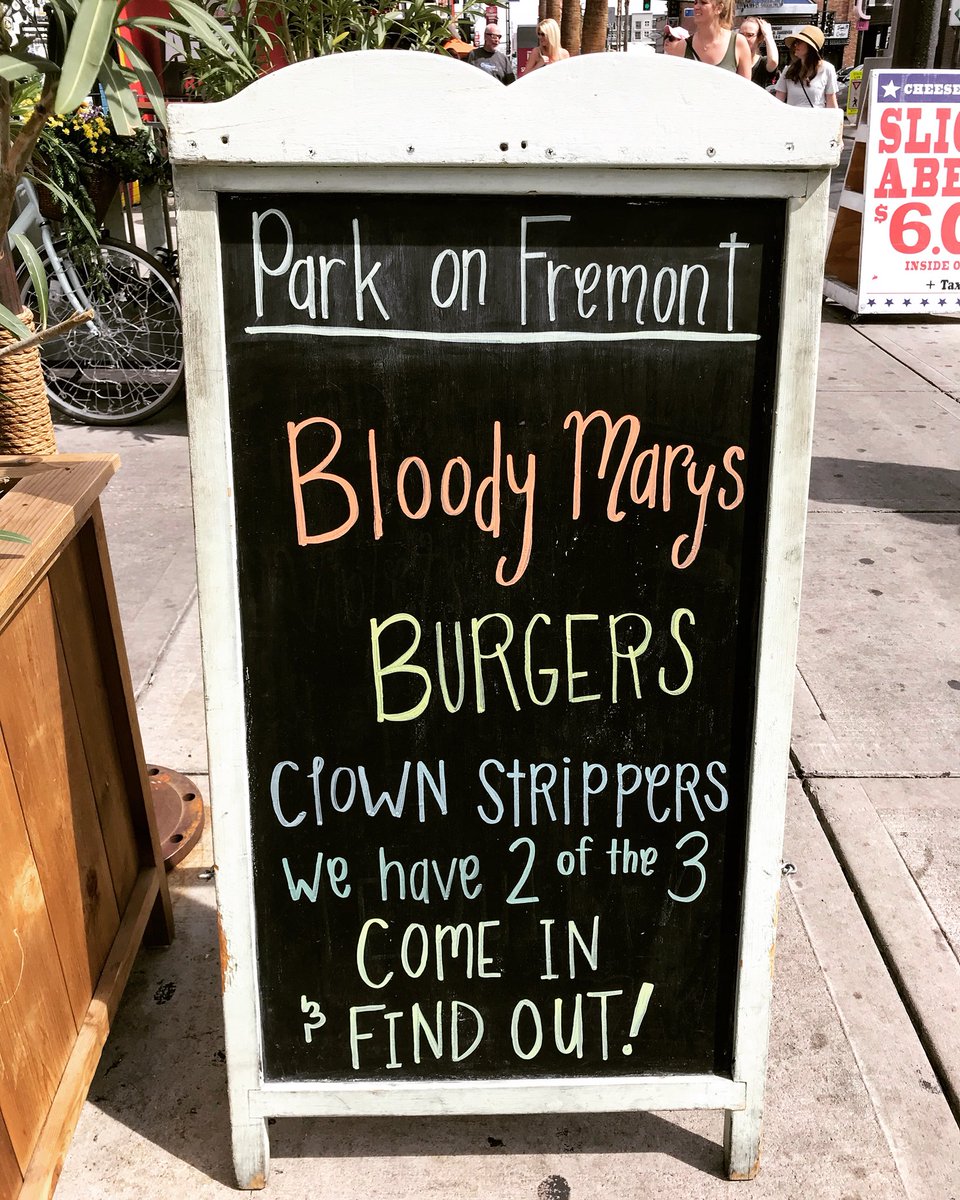 Park on Fremont
Bloody Marys
BURGERS
Clown Strippers
We have 2 of the 3
COME IN
& FIND OUT!
CHEESE
$6.0
INSIDE
+ Tax